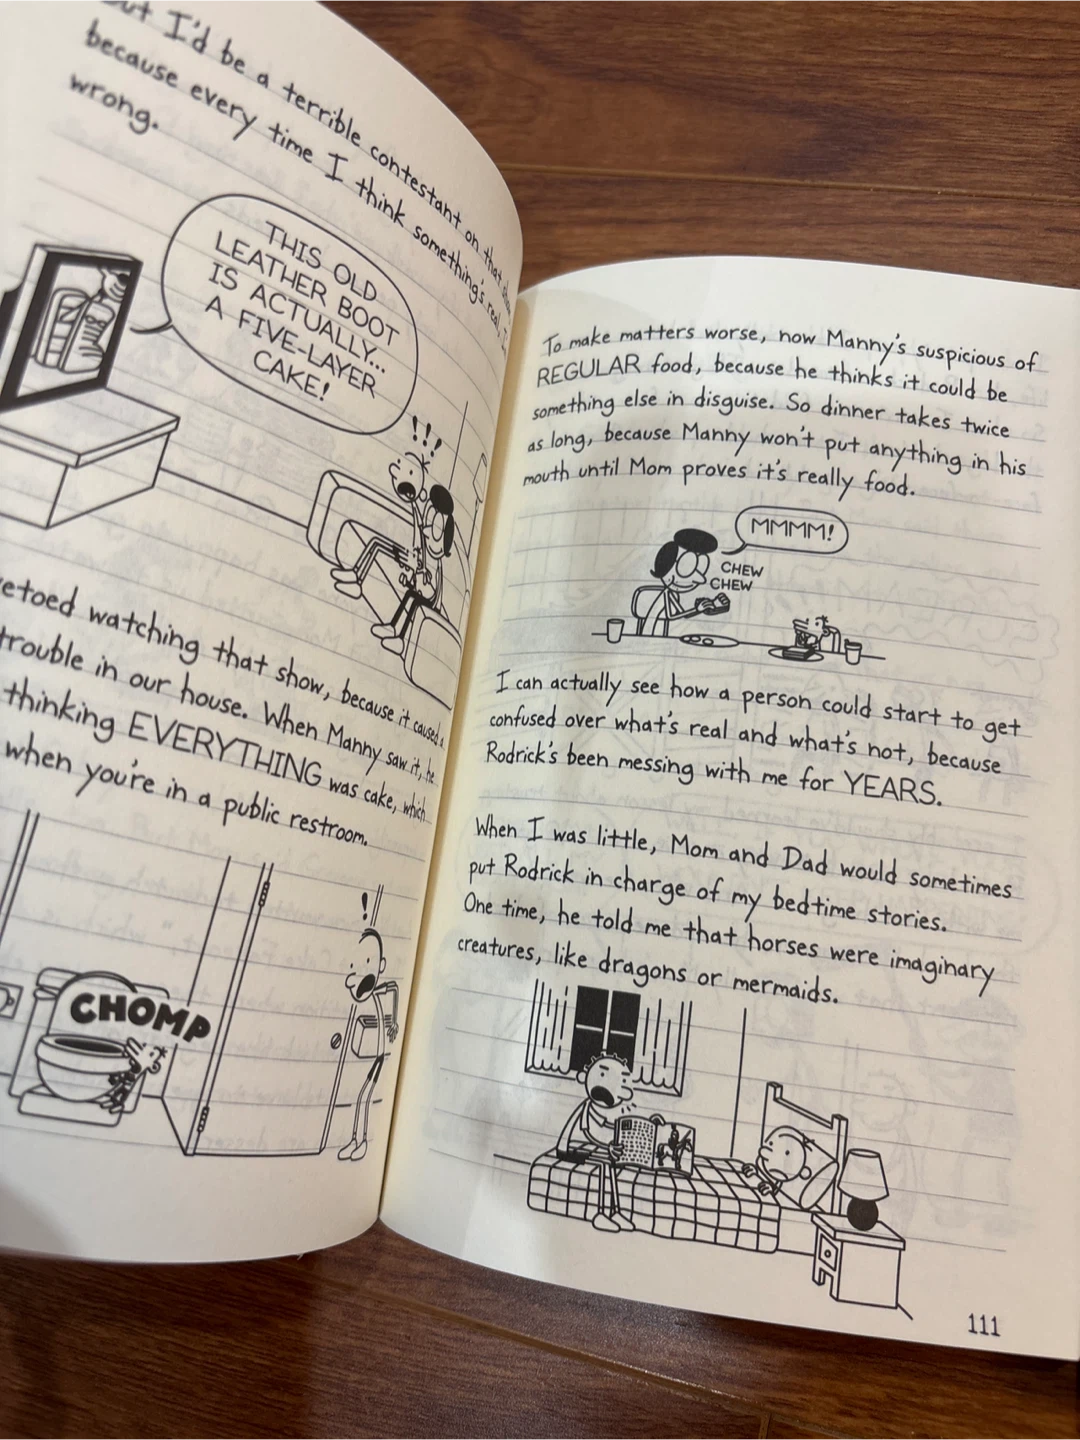 I'd be a terrible contestant on that show
because every time I think something's real,
wrong.
THIS OLD
LEATHER BOOT
IS ACTUALLY...
A FIVE-LAYER
CAKE!
!!!
etoed watching that show, because it caused a
trouble in our house. When Manny saw it, he
thinking EVERYTHING was cake, which
when you're in a public restroom.
!
CHOMP
To make matters worse, now Manny's suspicious of
REGULAR food, because he thinks it could be
something else in disguise. So dinner takes twice
as long, because Manny won't put anything in his
mouth until Mom proves it's really food.
MMMM!
CHEW
CHEW
I can actually see how a person could start to get
confused over what's real and what's not, because
Rodrick's been messing with me for YEARS.
When I was little, Mom and Dad would sometimes
put Rodrick in charge of my bedtime stories.
One time, he told me that horses were imaginary
creatures, like dragons or mermaids.
111